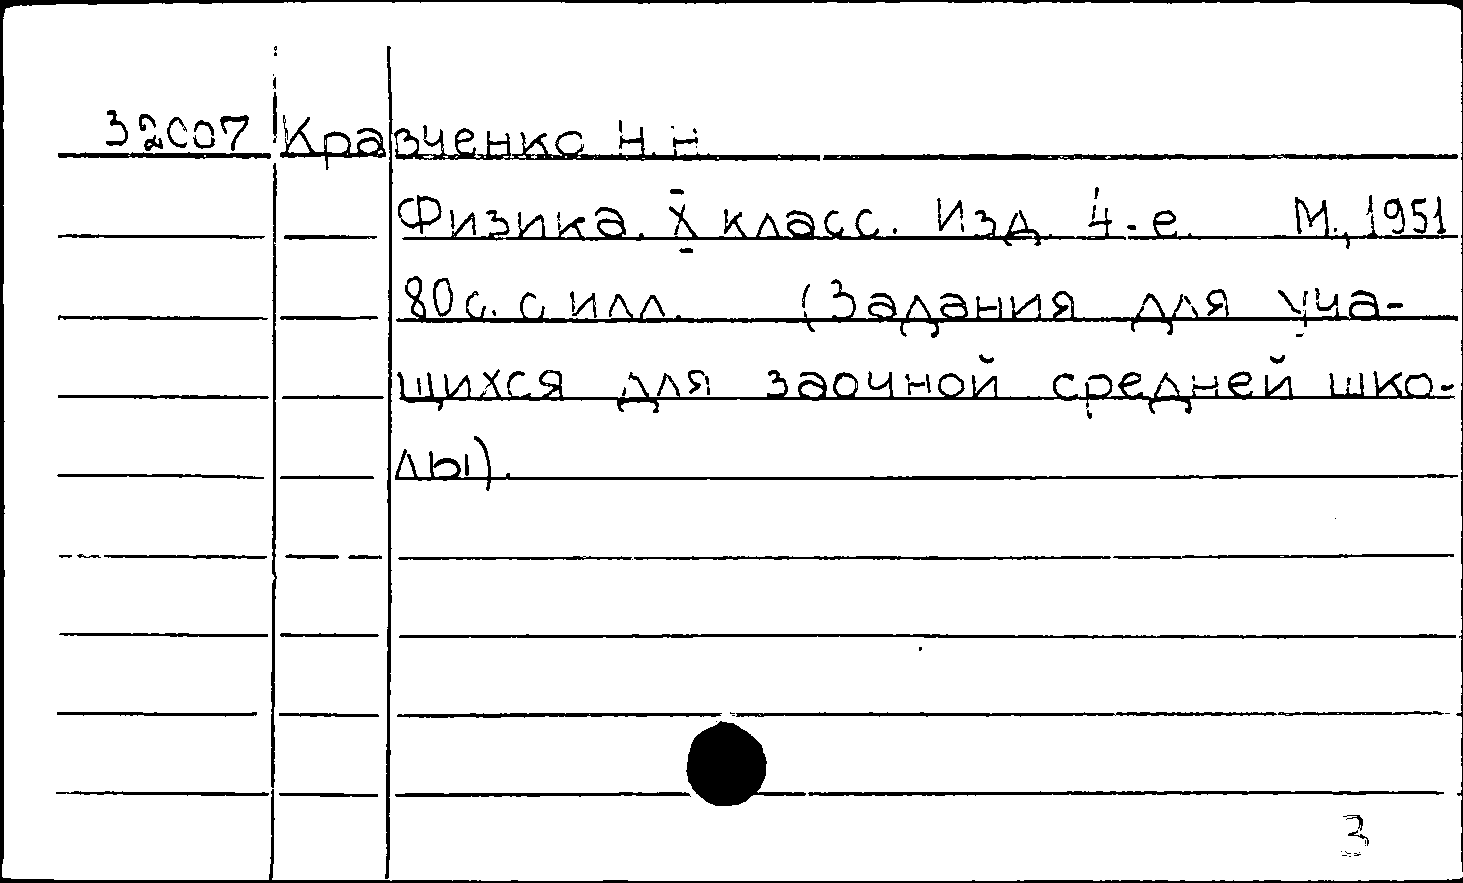 32007 Кравченко Н.Н.
Физика. X класс. Изд. 4-е. М., 1951
80 с. с илл. (Задания для уча-
щихся для заочной средней шко-
лы).
3